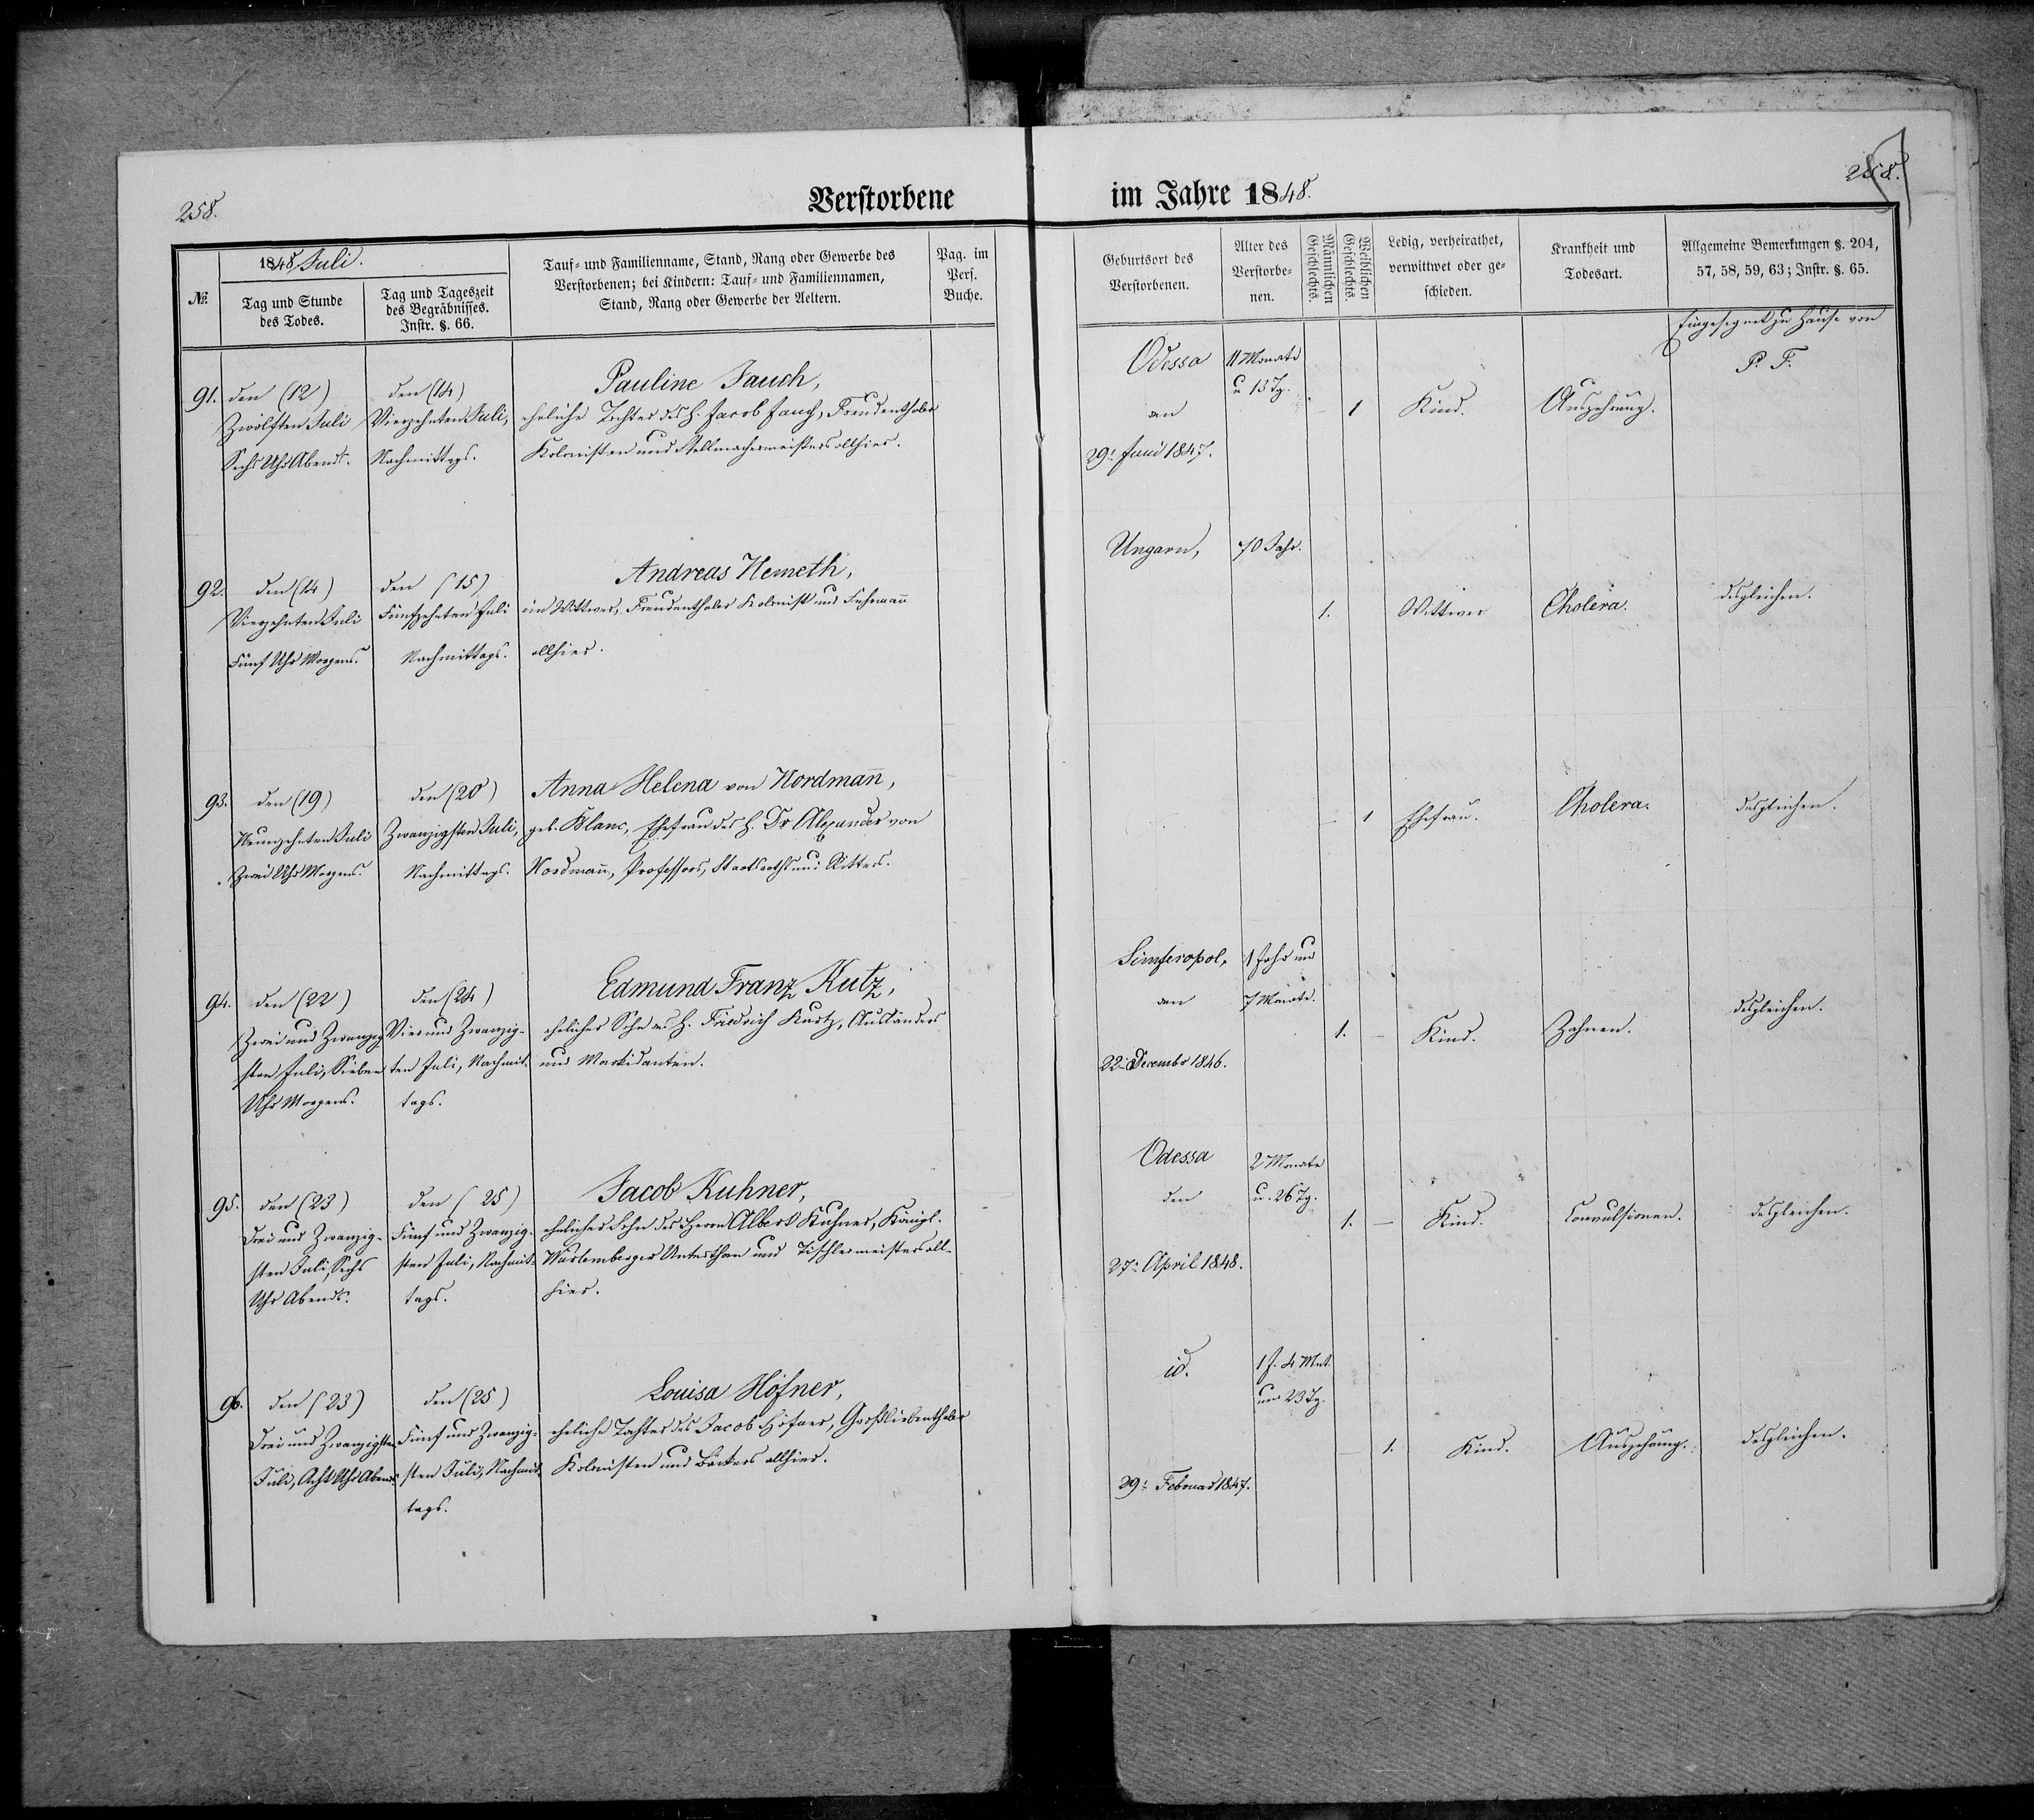 258.
Verstorbene
im Jahre 1848.
258.
1848 Juli.
№
Tag und Stunde
des Todes.
Tag und Tageszeit
des Begräbnisses.
Instr. §. 66.
Tauf- und Familienname, Stand, Rang oder Gewerbe des
Verstorbenen; bei Kindern: Tauf- und Familiennamen,
Stand, Rang oder Gewerbe der Aeltern.
Pag. im
Pers.
Buche.
Geburtsort des
Verstorbenen.
Alter des
Verstorbe-
nen.
Männlichen
Geschlechts.
Weiblichen
Geschlechts.
Ledig, verheirathet,
verwittwet oder ge-
schieden.
Krankheit und
Todesart.
Allgemeine Bemerkungen §. 204,
57, 58, 59, 63; Instr. §. 65.
91.
den (12)
Zwölften Juli
Sechs Uhr Abends.
den (14)
Vierzehnten Juli,
Nachmittags.
Pauline Jauch,
eheliche Tochter des H. Jacob Jauch, Freudenthaler
Kolonisten und Stellmachermeisters allhier.
Odessa
an
29: Juni 1847.
11 Monate
u. 13 Tg.
1
Kind.
Auszehrung.
Eingesegnet zu Hause von
P. F.
92.
den (14)
Vierzehnten Juli
Fünf Uhr Morgens.
den (15)
Fünfzehnten Juli
Nachmittags.
Andreas Nemeth,
ein Wittwer, Freudenthaler Kolonist und Fuhrmann
allhier.
Ungarn,
70 Jahr.
1.
Wittwer
Cholera.
desgleichen.
93.
den (19)
Neunzehnten Juli
Zwei Uhr Morgens.
den (20)
Zwanzigsten Juli,
Nachmittags.
Anna Helena von Nordmann,
geb. Blanc, Ehefrau des H. Dr Alexander von
Nordmann, Professors, Staatsraths und Ritters.
1
Ehefrau.
Cholera.
desgleichen.
94.
den (22)
Zwei und Zwanzig
sten Juli, Sieben
Uhr Morgens.
den (24)
Vier und Zwanzig-
ten Juli, Nachmit-
tags.
Edmund Franz Kutz,
ehelicher Sohn des H. Friedrich Kurtz, Ausländers
und Markidanten.
Simferopol,
den
22. December 1846.
1 Jahr und
7 Monate.
1. –
Kind.
Zahnen.
desgleichen.
95.
den (23)
Drei und Zwanzig-
sten Juli, Sechs
Uhr Abends.
den (25)
Fünf und Zwanzig-
sten Juli, Nachmit-
tags.
Jacob Kuhner,
ehelicher Sohn des Herrn Albert Kuhner, Königl.
Würtemberger Unterthan und Tischlermeisters all-
hier.
Odessa
den
27: April 1848.
2 Monate
u. 26 Tg.
1. –
Kind.
Convulsionen.
desgleichen.
96.
den (23)
Drei und Zwanzigsten
Juli, Acht Uhr Abends
den (25)
Fünf und Zwanzig-
sten Juli, Nachmit-
tags.
Louisa Höfner,
eheliche Tochter des Jacob Höfner, Großliebenthaler
Kolonisten und Bäckers allhier.
id.
29: Februar 1847.
1 J. 4 Mnt.
und 23 Tg.
– 1.
Kind.
Auszehrung.
desgleichen.